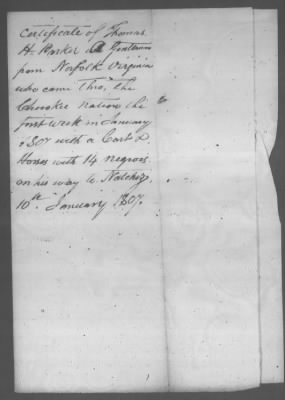 Certificate of Thomas
H. Parker a Gentleman
from Norfolk Virginia
who came Thro, the
Cherokee nation the
first week in January
1807 with a Cart &
Horses with 14 negroes
on his way to Natchez,
10th January 1807.